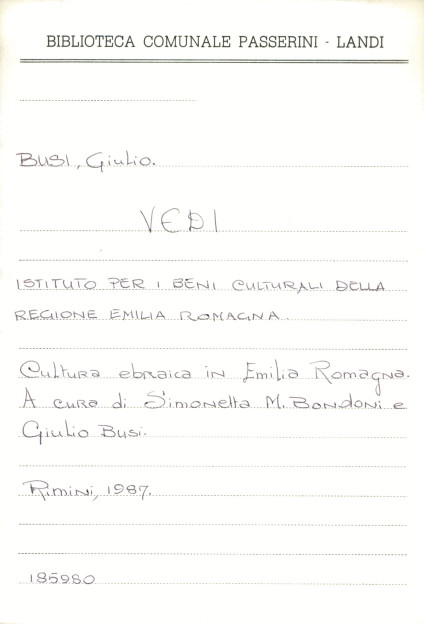 BIBLIOTECA COMUNALE PASSERINI - LANDI
BUSI, Giulio.
VEDI
ISTITUTO PER I BENI CULTURALI DELLA
REGIONE EMILIA ROMAGNA.
Cultura ebraica in Emilia Romagna.
A cura di Simonetta M. Bondoni e
Giulio Busi.
Rimini, 1987.
185980